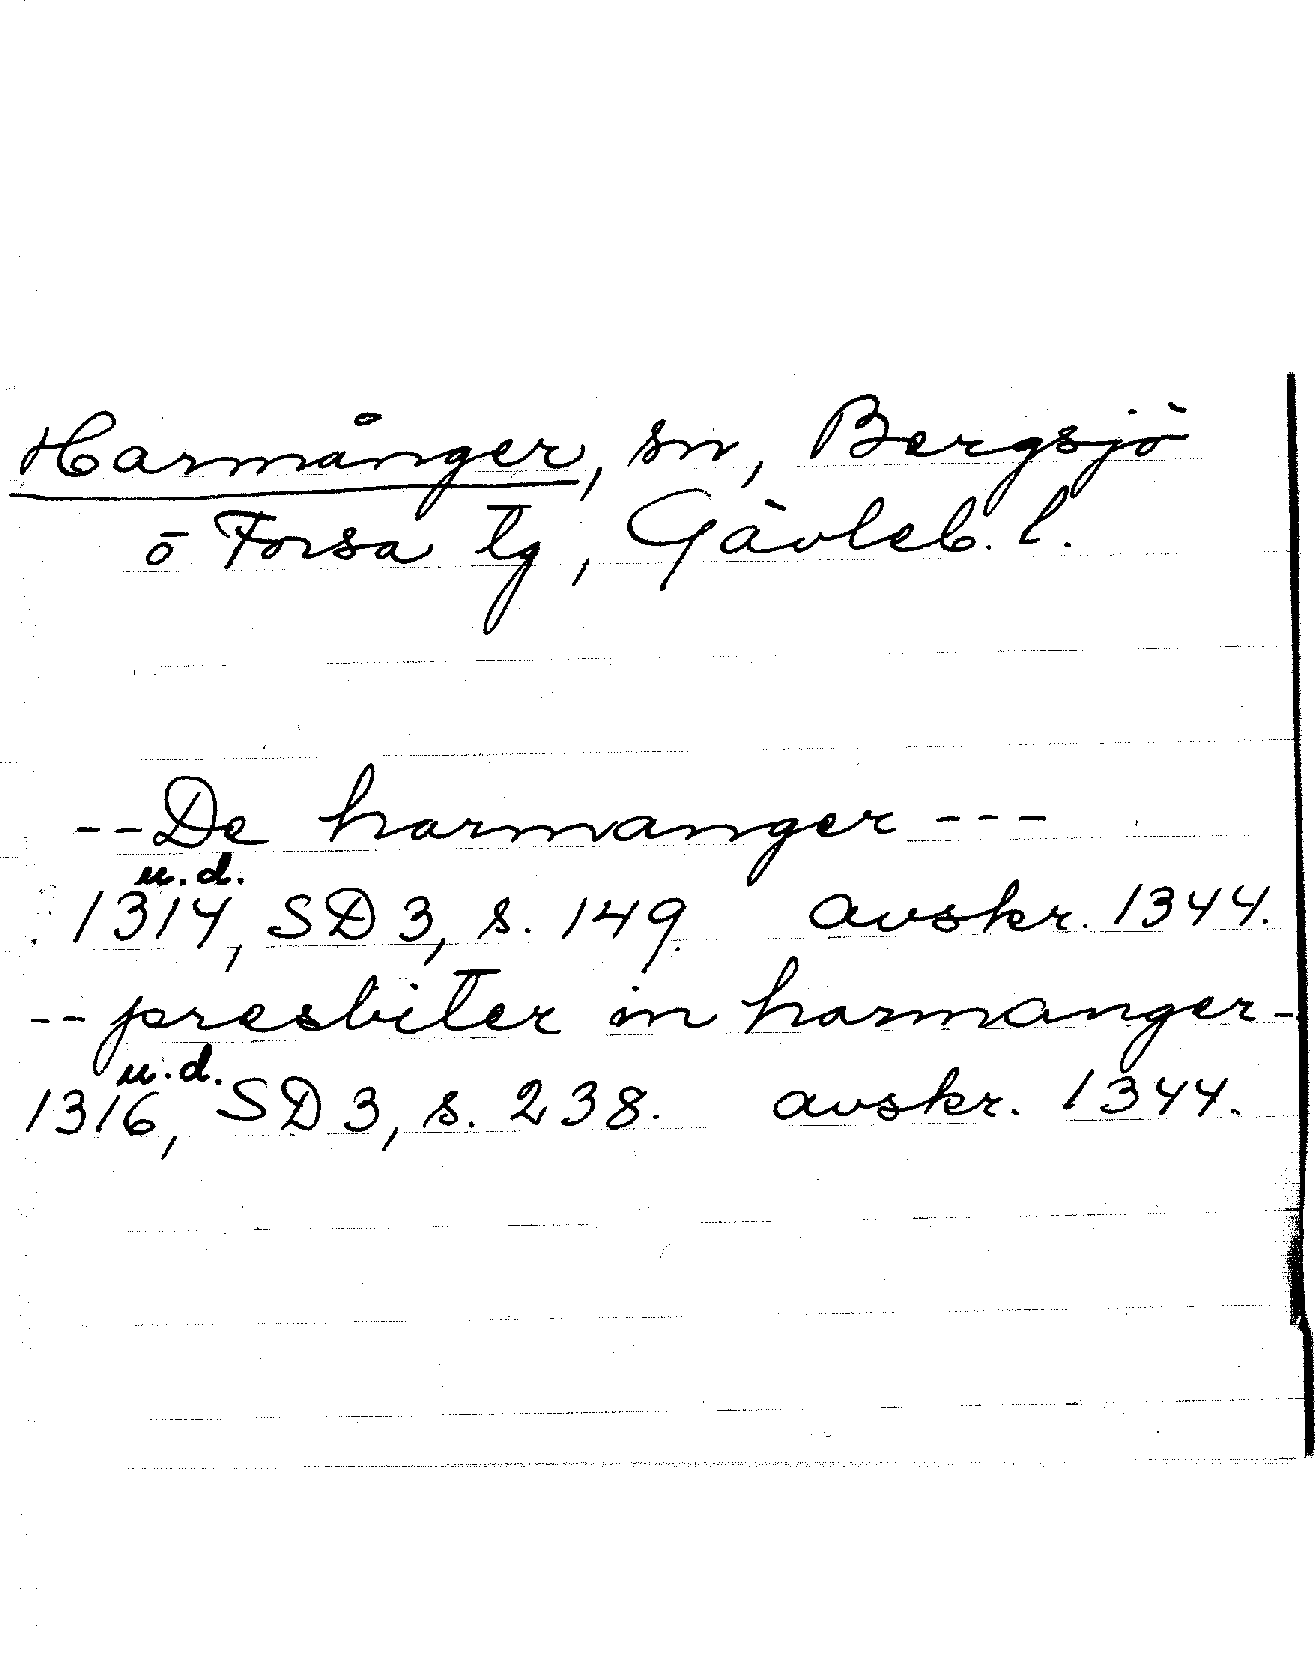 Harmånger, sn, Bergsjö
o Forsa tg, Gävleb. l.
--De harmanger---
u.d.
1314, SD 3, s. 149. avskr. 1344.
--presbiter in harmanger-
u.d.
1316, SD 3, s. 238. avskr. 1344.